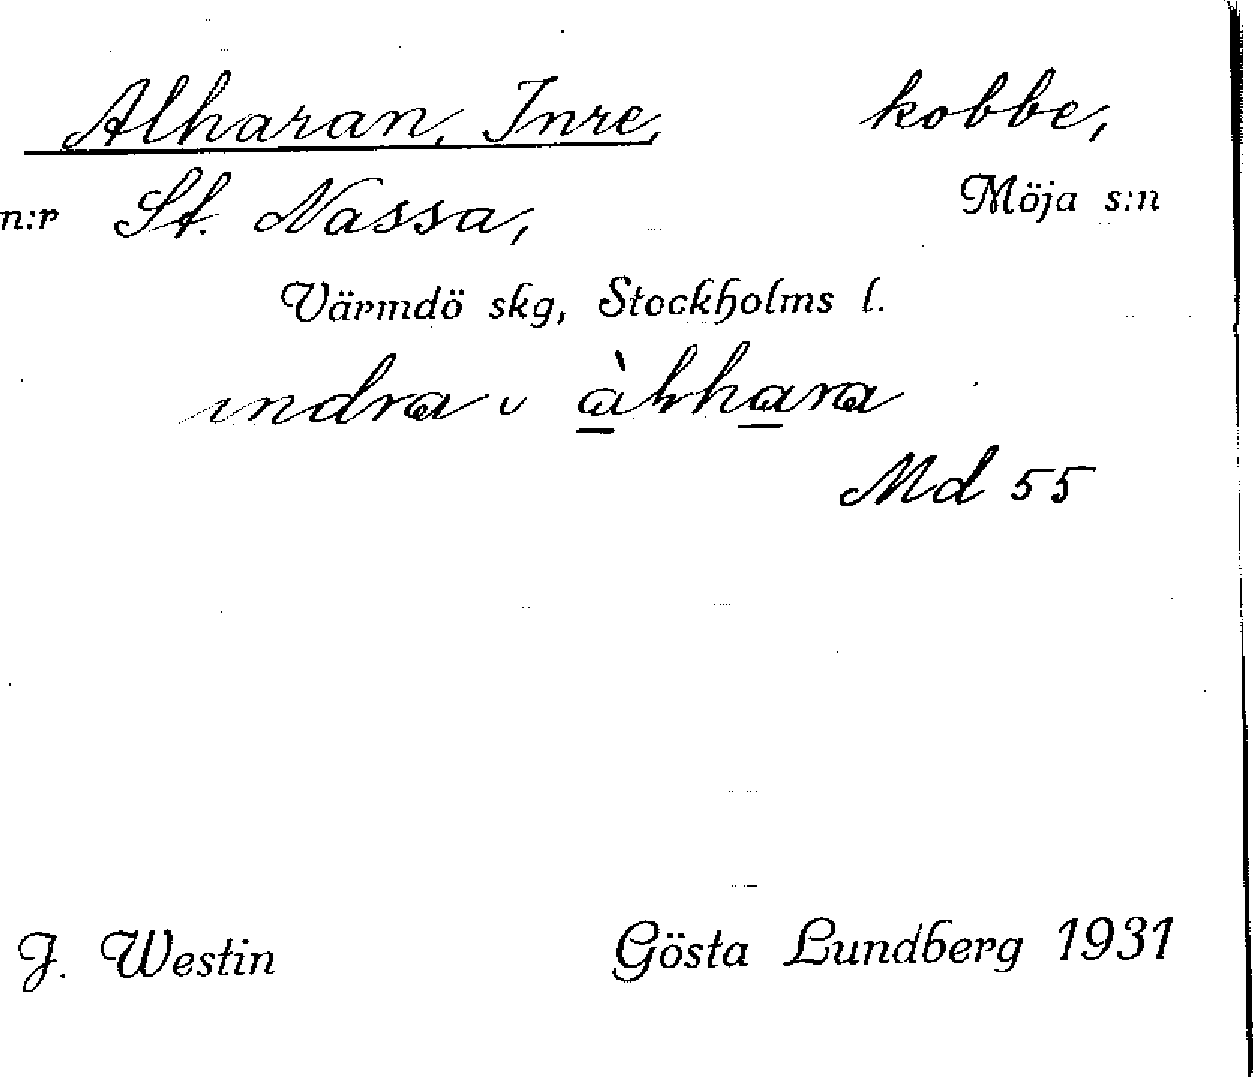 Alharan, Inre, kobbe,
n:r St. Nassa, Möja s:n
Värmdö skg, Stockholms l.
indra
Md 55
J. Westin Gösta Lundberg 1931